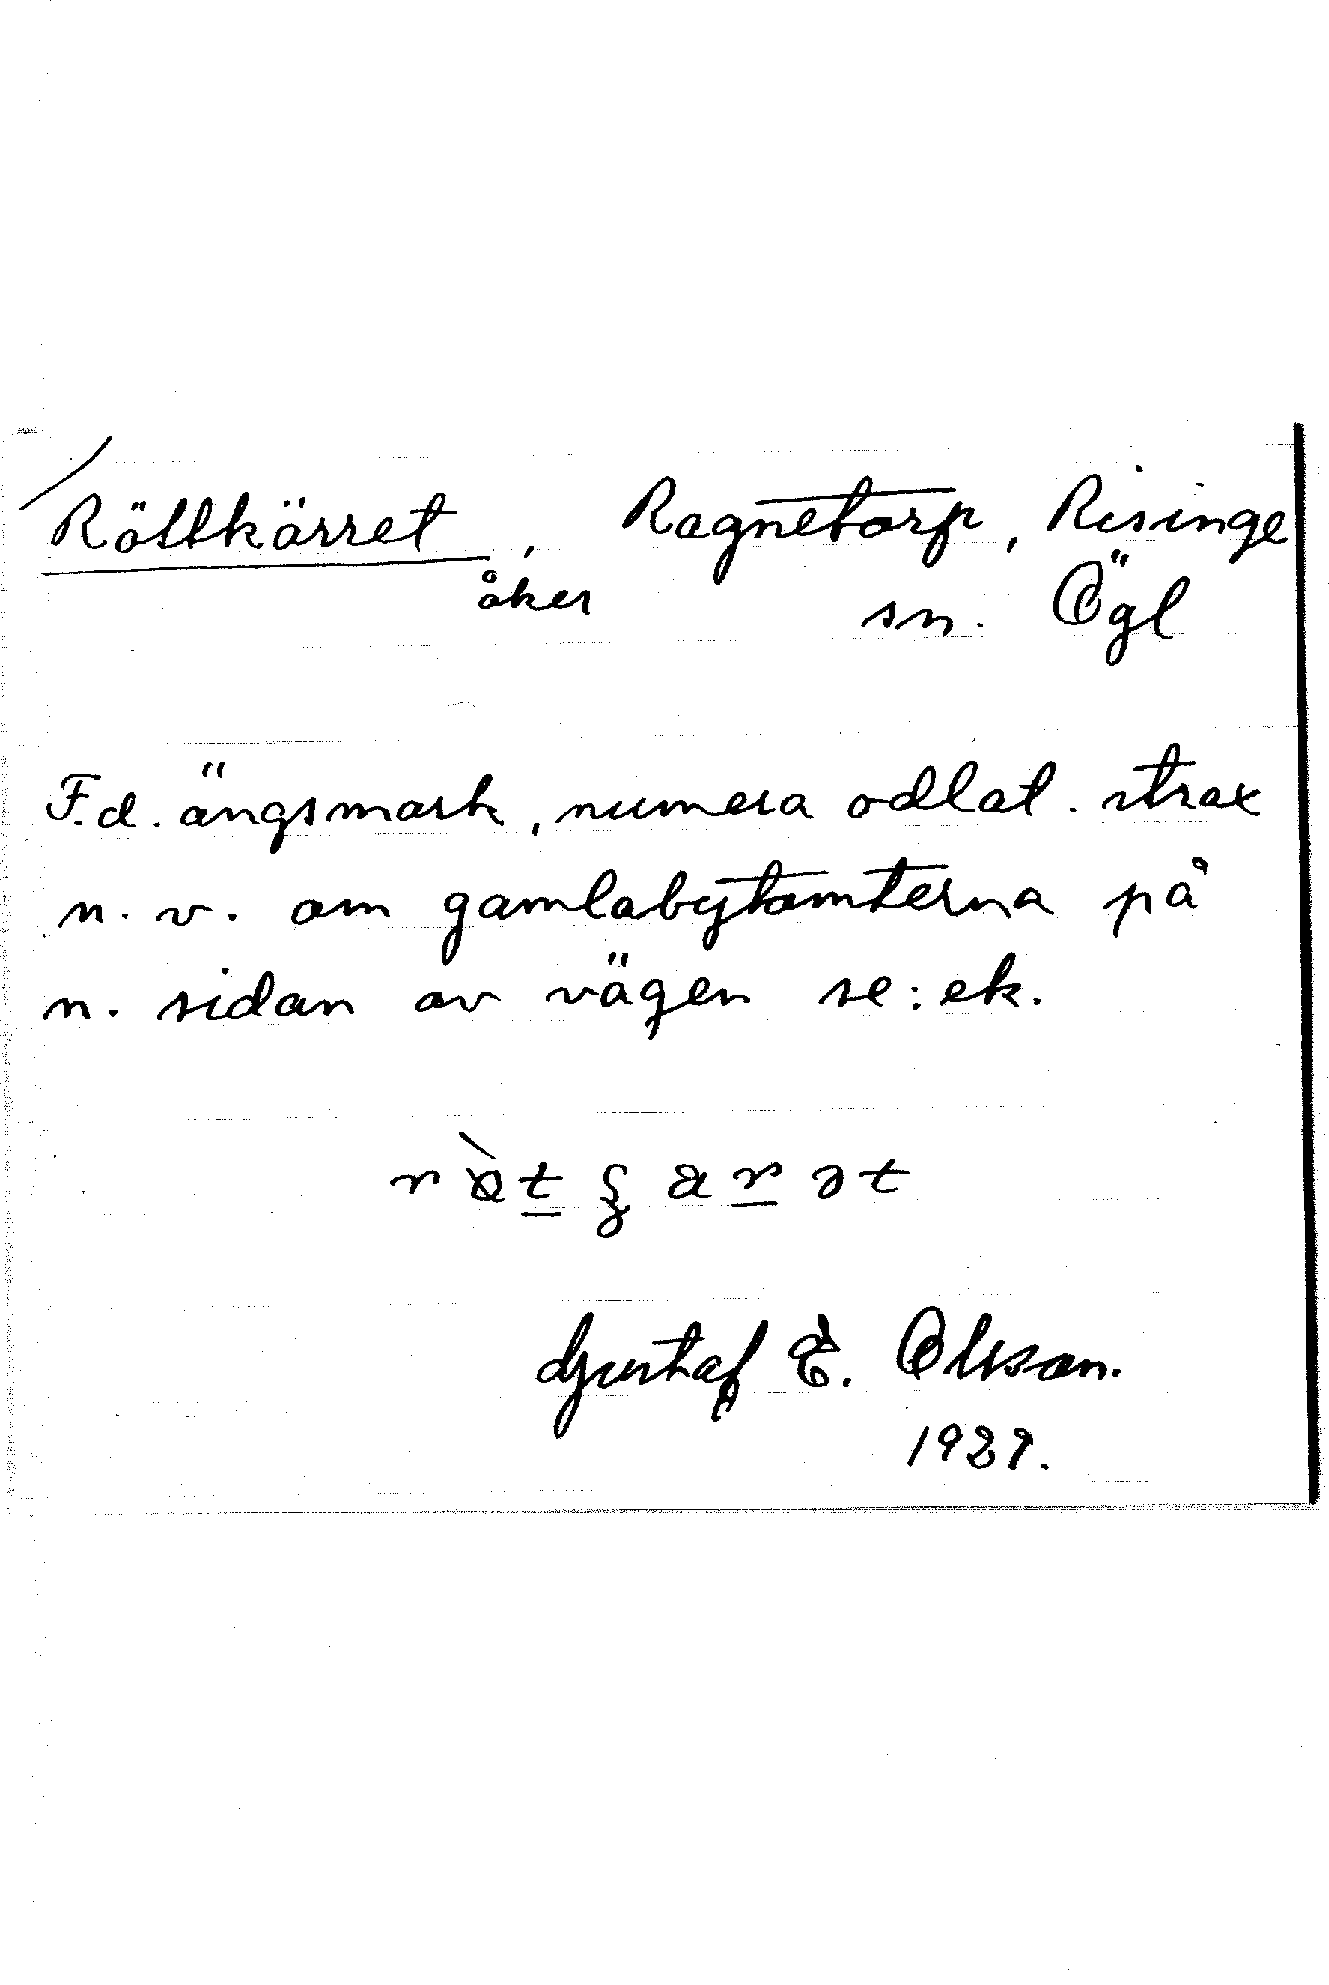 Röttkärret, Ragnetorp, Risinge
åker sn. Ögl
F.d. ängsmark, numera odlat. strax
n. v. om gamlabytomterna på
n. sidan av vägen se: ek.
Gustaf E. Olsson.
1929.